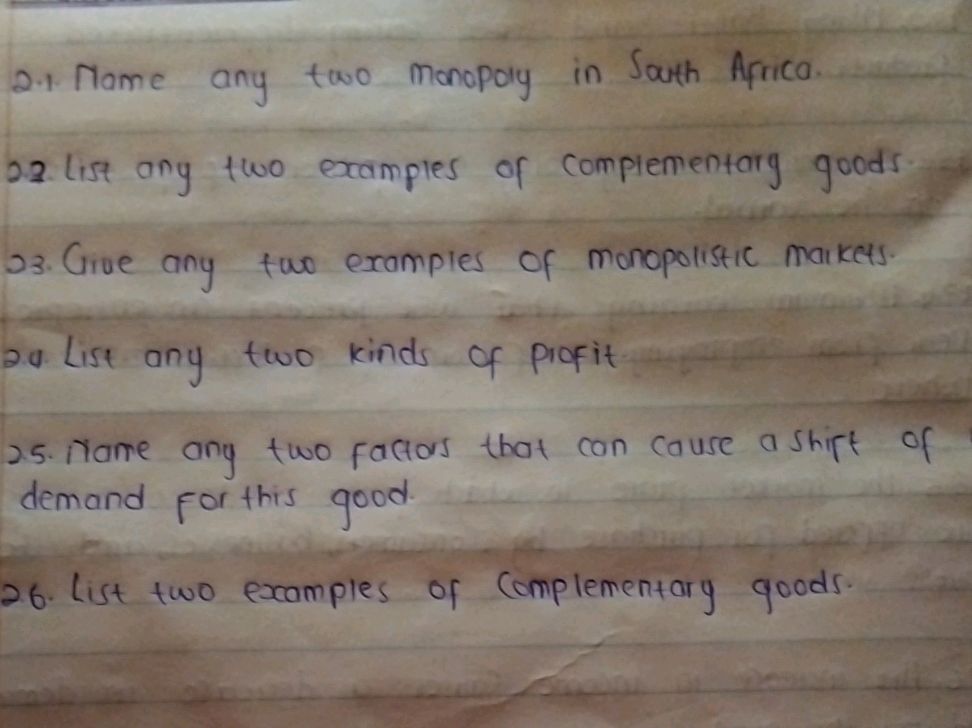 2.1. Name any two monopoly in South Africa.
2.2 List any two examples of complementary goods.
23. Give any two examples of monopolistic markets.
24. List any two kinds of profit
25. Name any two factors that can cause a shift of
demand for this good.
26. List two examples of Complementary goods.